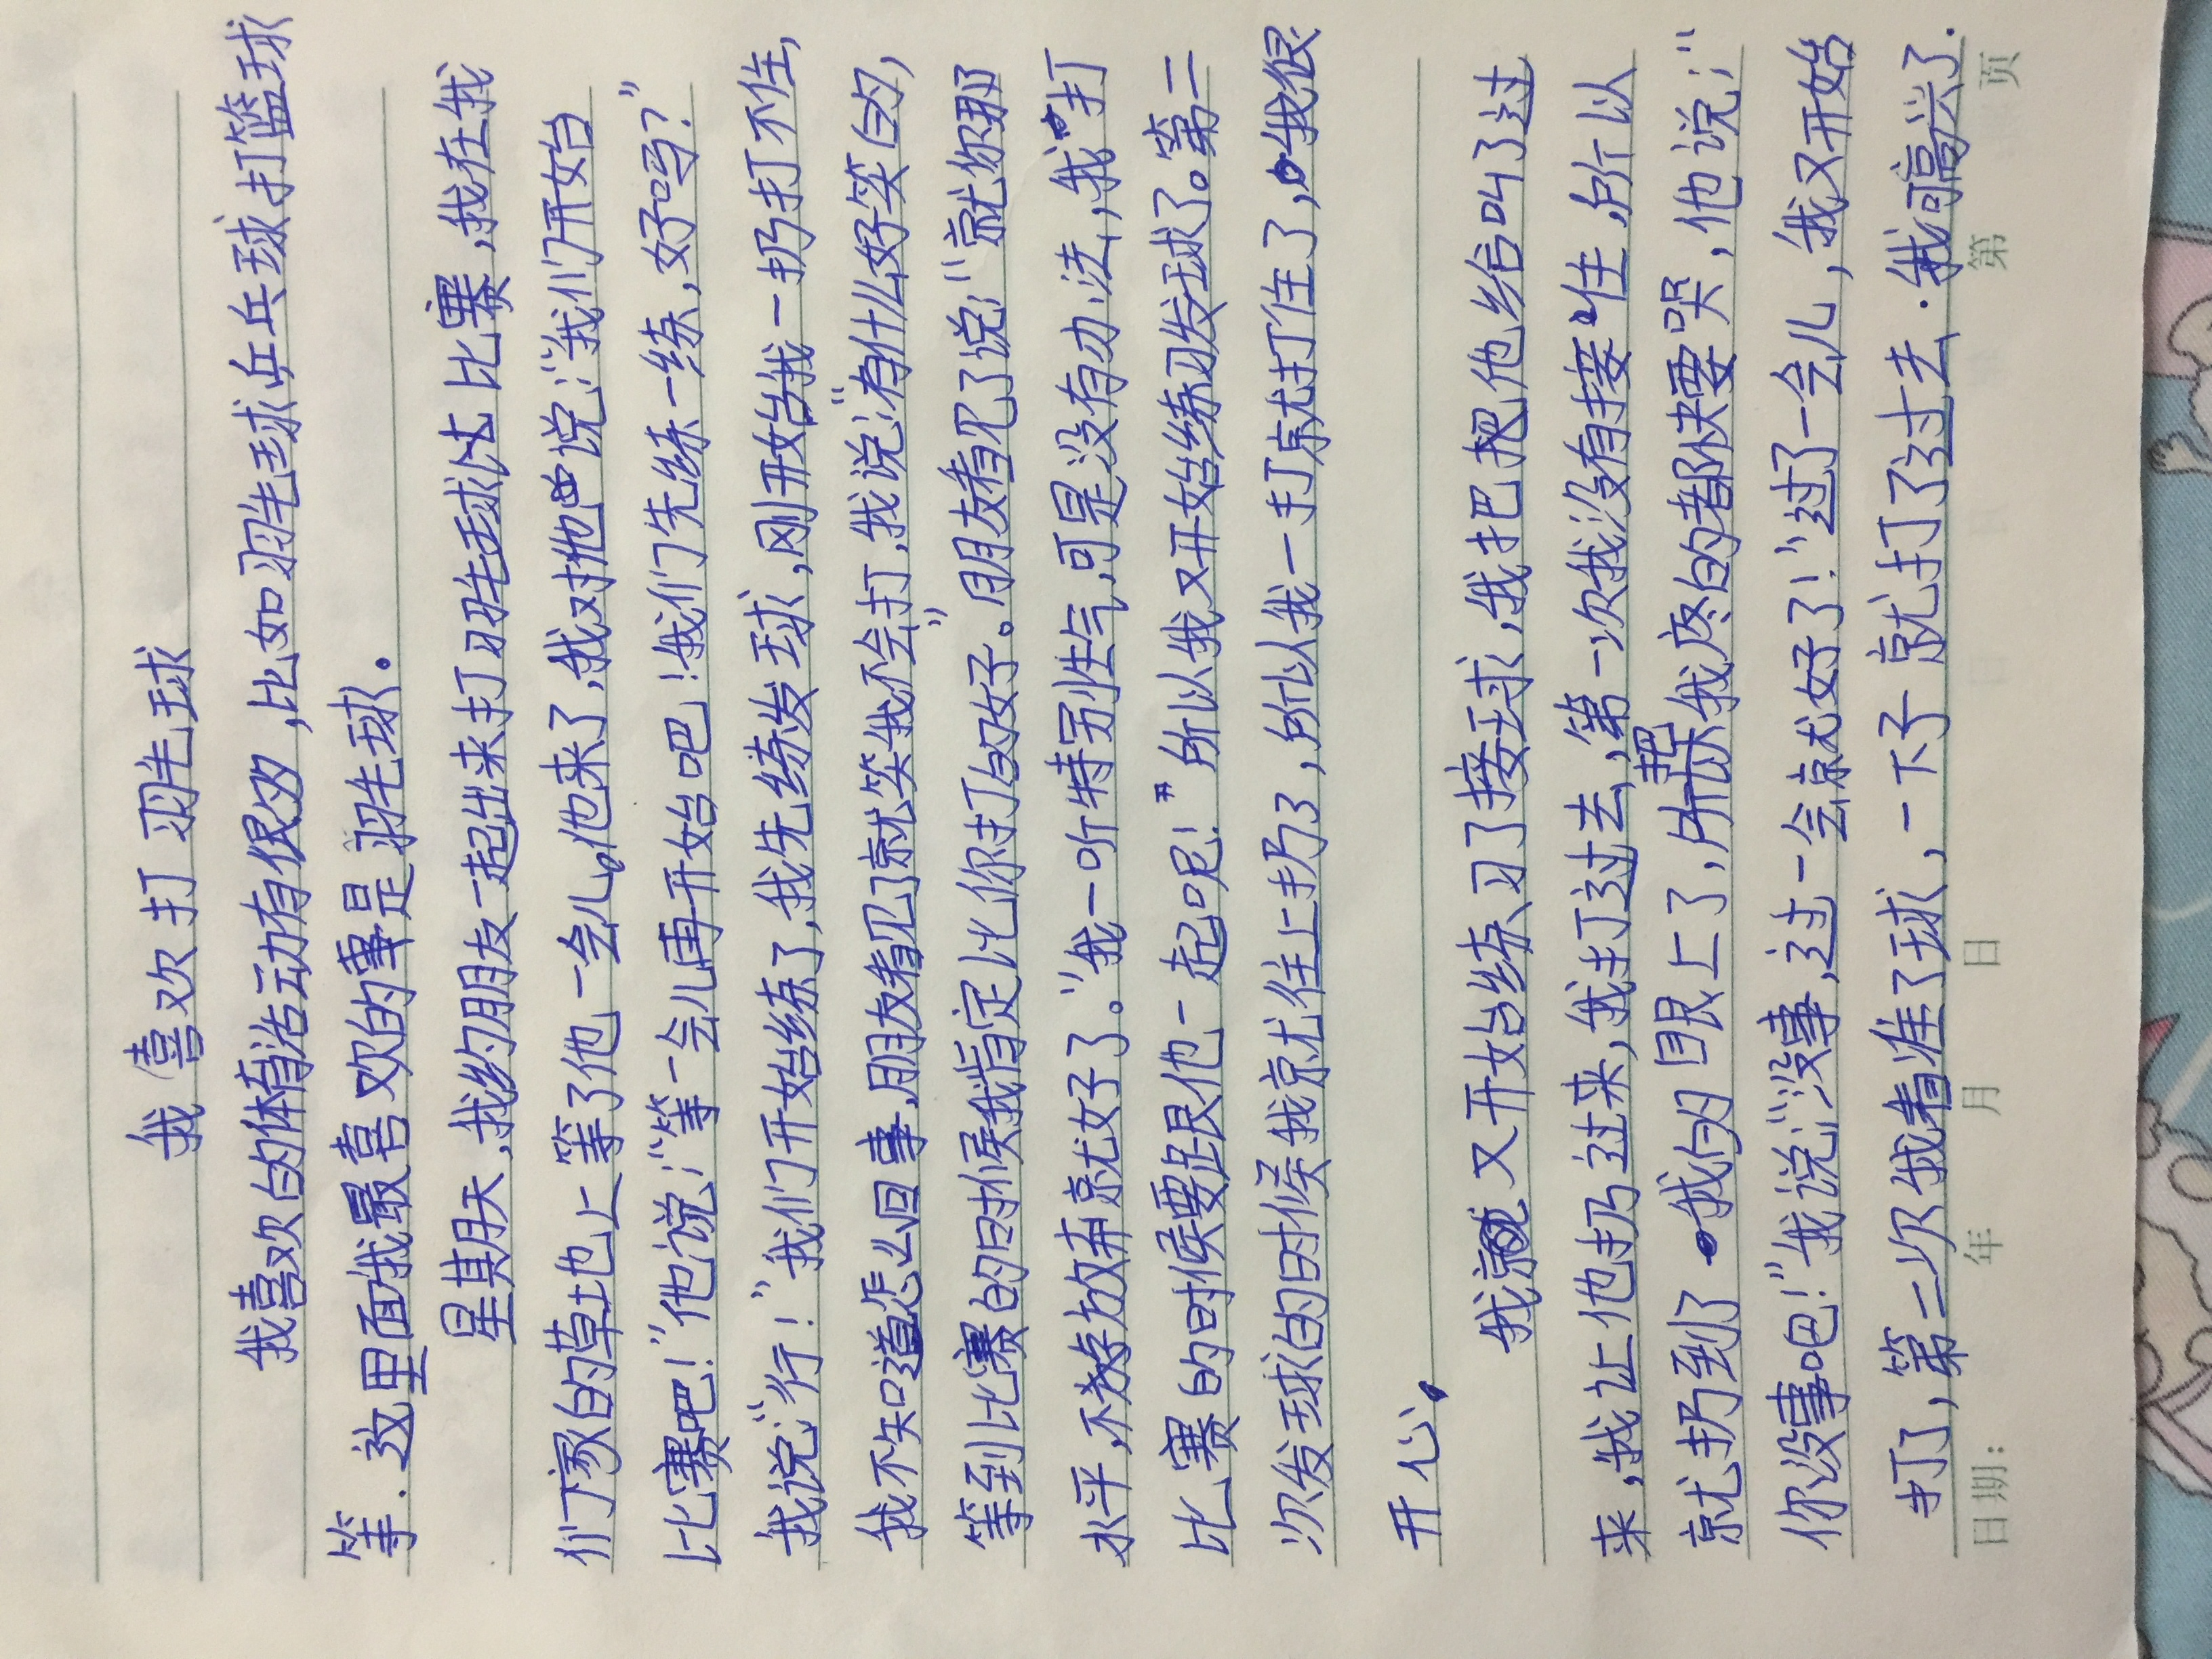 我喜欢打羽毛球
我喜欢的体育活动有很多,比如羽毛球乒乓球打篮球
等.这里面我最喜欢的事是羽毛球。
星期天,我约朋友一起出来打羽毛球比赛,我在我
们家的草地上等了他一会儿。他来了,我对他说:“我们开始
比赛吧!”他说:“等一会儿再开始吧!我们先练一练,好吗?”
我说:“行!”我们开始练了,我先练发球,刚开始我一扔打不住,
我不知道怎么回事,朋友看见了就笑我不会打,我说:“有什么好笑的,
等到比赛的时候我肯定比你打的好。”朋友看见了说:“就你那
水平,不放弃就好了。”我一听特别生气,可是没有办法,我打
比赛的时候要跟他一起呢!”所以我又开始练习发球了。第二
次发球的时候我就往上扔了,所以我一打就打住了,我很
开心,
我就又开始练习了接球,我把他给叫了过
来,我让他扔过来,我打过去,第一次我没有接住,所以
就扔到了我的眼上了,把我疼的都快要哭,他说:“
你没事吧!”我说:“没事,过一会就好了!”过了一会儿,我又开始
打了,第二次我看准了球,一下子就打了过去.我可高兴了.
日期: 年 月 日 第 页